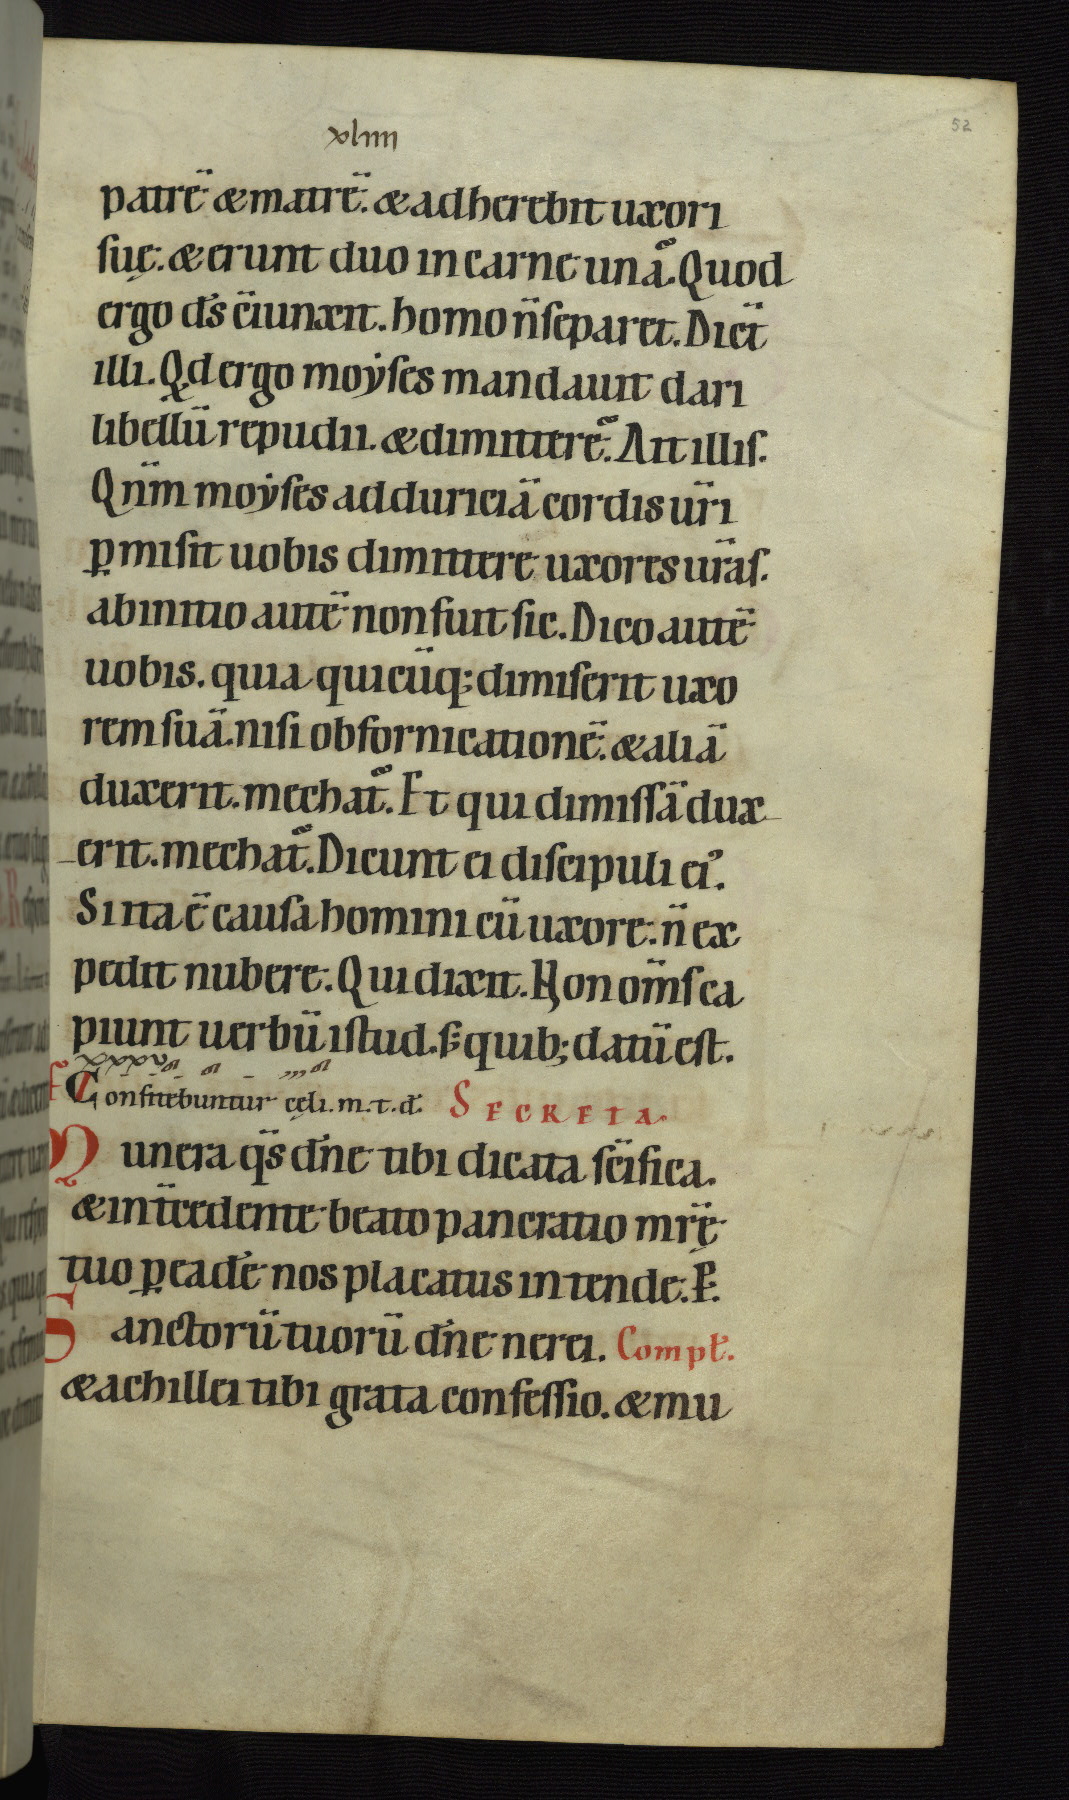 xliiii
52
patrē ⁊ matrē. ⁊ adherebit uxori
suę. ⁊ erunt duo in carne unā. Quod
ergo ds̄ c̄iunxit. homo n̄ separet. Dic̄t
illi. Qd ergo moẏses mandauit dari
libellū repudii. ⁊ dimittere. Ait illis.
Qn̄m moẏses ad duriciā cordis ur̄i
ꝑmisit uobis dimittere uxores ur̄as.
ab initio autē non fuit sic. Dico autē
uobis. quia quicūq; dimiserit uxo
rem suā. nisi ob fornicationē. ⁊ aliā
duxerit. mechat̄. Et qui dimissā dux
erit. mechat̄. Dicunt ei discipuli ei᾽.
Si ita ē causa homini cū uxore. n̄ ex
pedit nubere. Qui dixit. Non om̄s ca
piunt uerbū istud. s; quib; datū est.
Confitebuntur cęli. m. t. d. SECRETA.
Munera qs̄ dn̄e tibi dicata sc̄ifica.
⁊ int̄cedente beato pancratio mr̄e
tuo ꝑ eadē nos placatus intende. P.
Sanctorū tuorū dn̄e nerei. Compt̄.
⁊ achillei tibi grata confessio. ⁊ mu